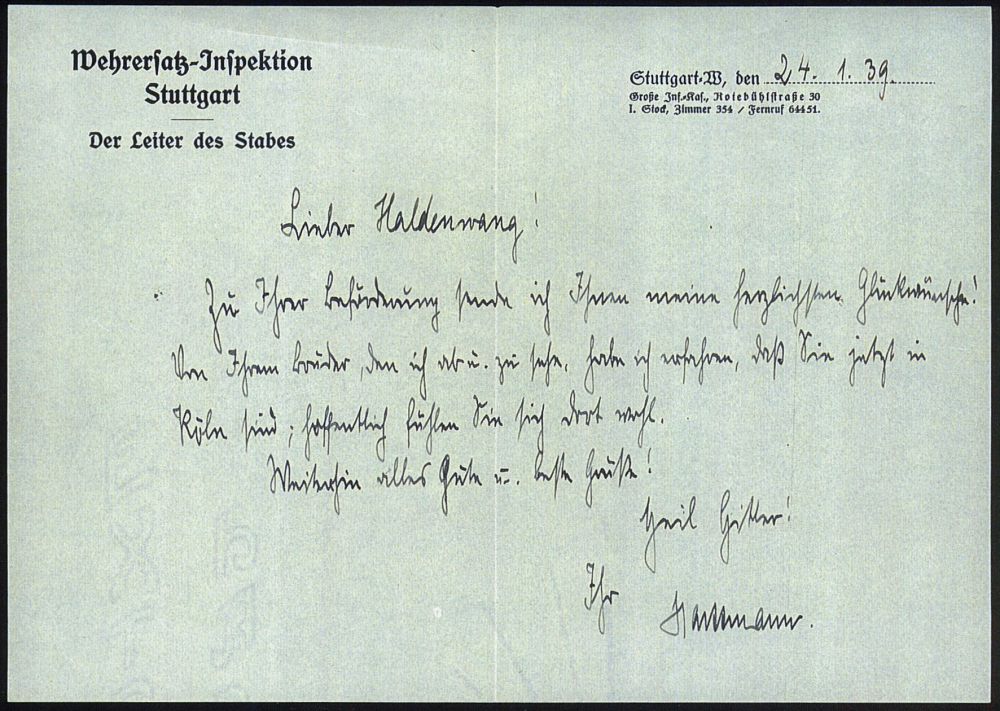 Wehrersatz-Inspektion
Stuttgart
Der Leiter des Stabes
Stuttgart-W, den 24. 1. 39.
Große Inf.-Kas., Rotebühlstraße 30
I. Stock, Zimmer 354 / Fernruf 64451.
Lieber Haldenwang!
Zu Ihrer Beförderung sende ich Ihnen meine herzlichsten Glückwünsche!
Von Ihrem Bruder, den ich ab u. zu sehe, habe ich erfahren, daß Sie jetzt in
Köln sind; hoffentlich fühlen Sie sich dort wohl.
Weiterhin alles Gute u. beste Grüße!
Heil Hitler!
Ihr Hartmann.